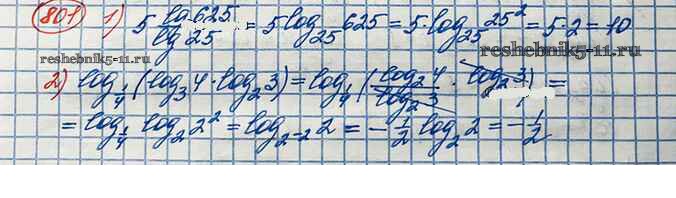 801 1) 5 lg 625 / lg 25 = 5 log₂₅ 625 = 5 · log₂₅ 25² = 5 · 2 = 10
reshebnik5-11.ru
reshebnik5-11.ru
2) log_{1/4} (log₃ 4 · log₂ 3) = log_{1/4} (log₂ 4 / log₂ 3 · log₂ 3 / 1) =
= log_{1/4} log₂ 2² = log_{2⁻²} 2 = - 1/2 log₂ 2 = - 1/2